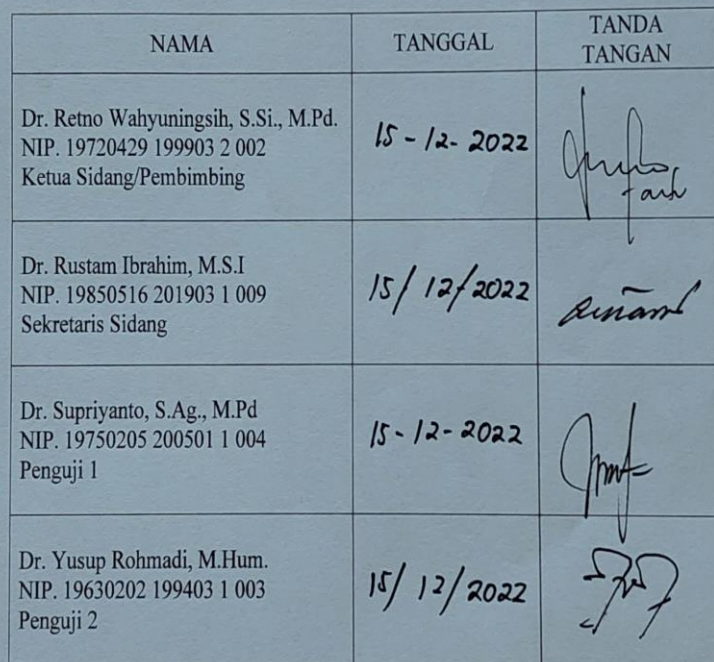 NAMA
TANGGAL
TANDA
TANGAN
Dr. Retno Wahyuningsih, S.Si., M.Pd.
NIP. 19720429 199903 2 002
Ketua Sidang/Pembimbing
15-12-2022
Dr. Rustam Ibrahim, M.S.I
NIP. 19850516 201903 1 009
Sekretaris Sidang
15/12/2022
Dr. Supriyanto, S.Ag., M.Pd
NIP. 19750205 200501 1 004
Penguji 1
15-12-2022
Dr. Yusup Rohmadi, M.Hum.
NIP. 19630202 199403 1 003
Penguji 2
15/12/2022